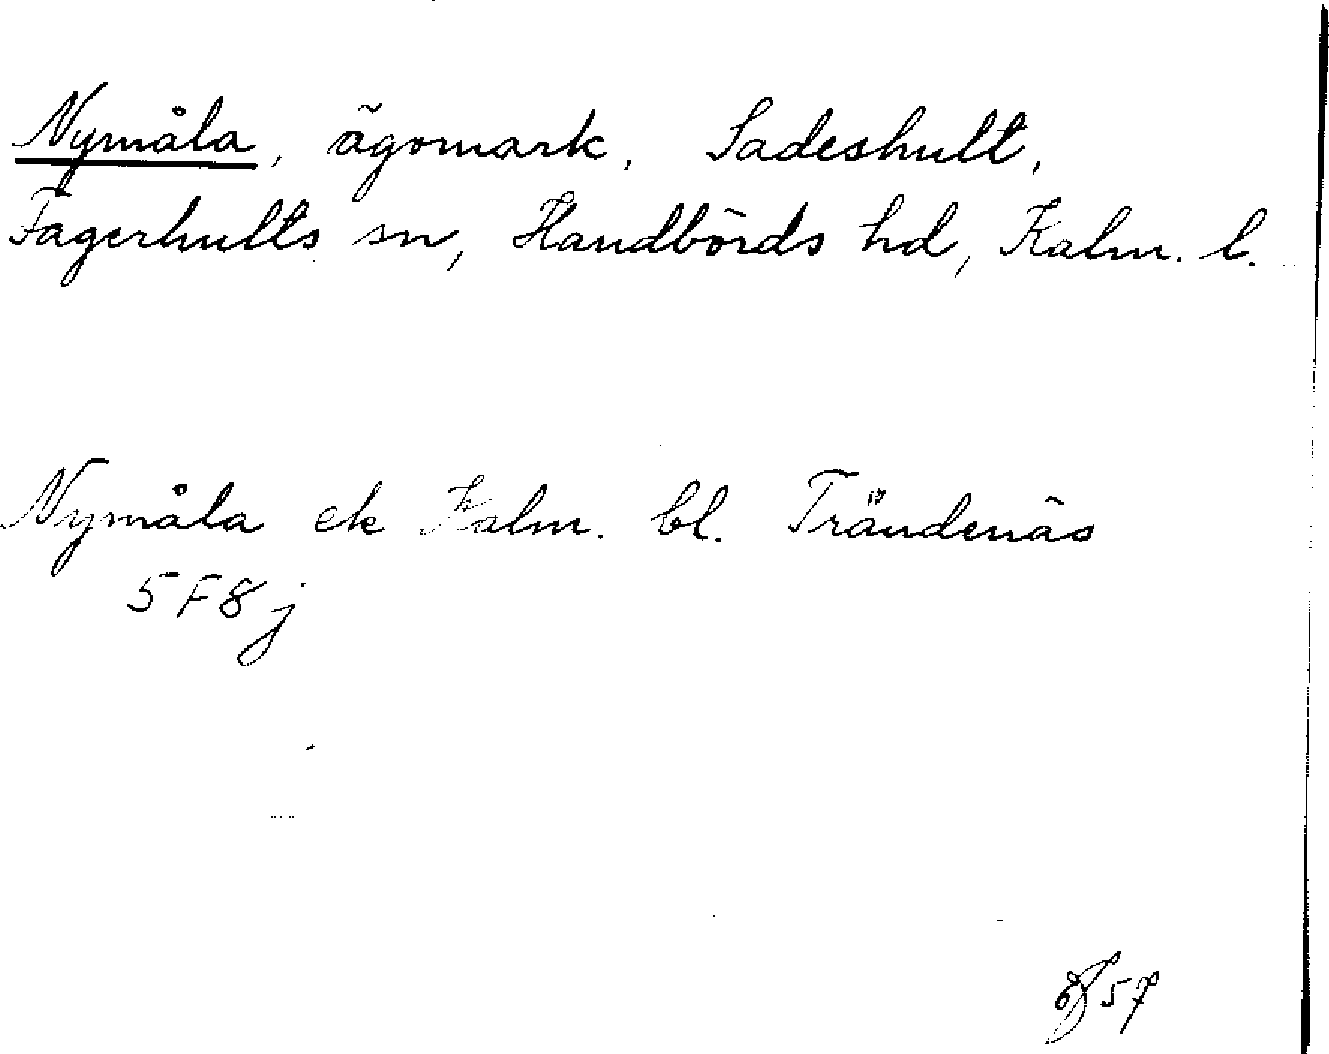 Nymåla, ägomark, Sadeshult,
Fagerhults sn, Handbörds hd, Kalm. l.
Nymåla ek Kalm. bl. Trändenäs
5F8j
57